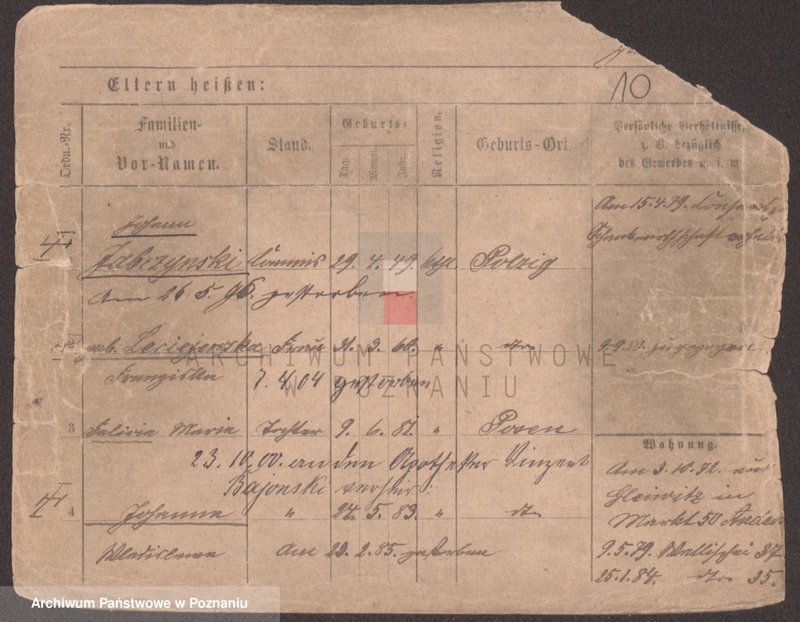 Eltern heißen:
10
Ordn.-Nr.
Familien-
und
Vor-Namen.
Stand.
Geburts-
Tag.
Monat.
Jahr.
Religion.
Geburts-Ort.
Persönliche Verhältnisse,
z. B. bezüglich
des Gewerbes u. s. w
Am 15.4.79.
Johann
Zabrzynski Commis 29. 4. 49. kath Polzig
Am 26. 5. 96. gestorben.
2 geb. Frau 31. 3. 60. " dto
Franziska 7. 4. 04 gestorben
3 Valeria Maria Tochter 9. 6. 81. " Posen
23. 10. 00. an den Apotheker Vinzent
Bajonski verheir.
4 Johanna " 24. 5. 83. " dto
Wladislawa am 23. 2. 85. gestorben
Wohnung.
Am 3.10.72. aus
Gleiwitz in
Markt 50
9.5.79. Wallischei 37
25.1.84. dto 35.
ARCHIWUM PAŃSTWOWE
W POZNANIU
Archiwum Państwowe w Poznaniu